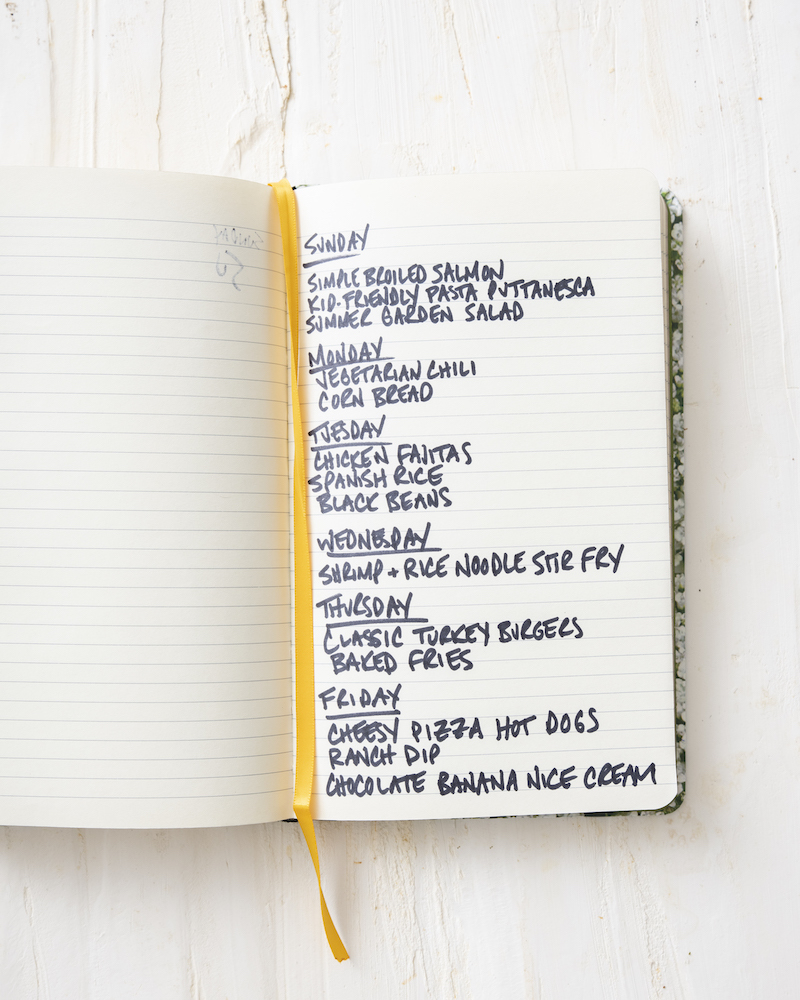 SUNDAY
SIMPLE BROILED SALMON
KID-FRIENDLY PASTA PUTTANESCA
SUMMER GARDEN SALAD
MONDAY
VEGETARIAN CHILI
CORN BREAD
TUESDAY
CHICKEN FAJITAS
SPANISH RICE
BLACK BEANS
WEDNESDAY
SHRIMP + RICE NOODLE STIR FRY
THURSDAY
CLASSIC TURKEY BURGERS
BAKED FRIES
FRIDAY
CHEESY PIZZA HOT DOGS
RANCH DIP
CHOCOLATE BANANA NICE CREAM